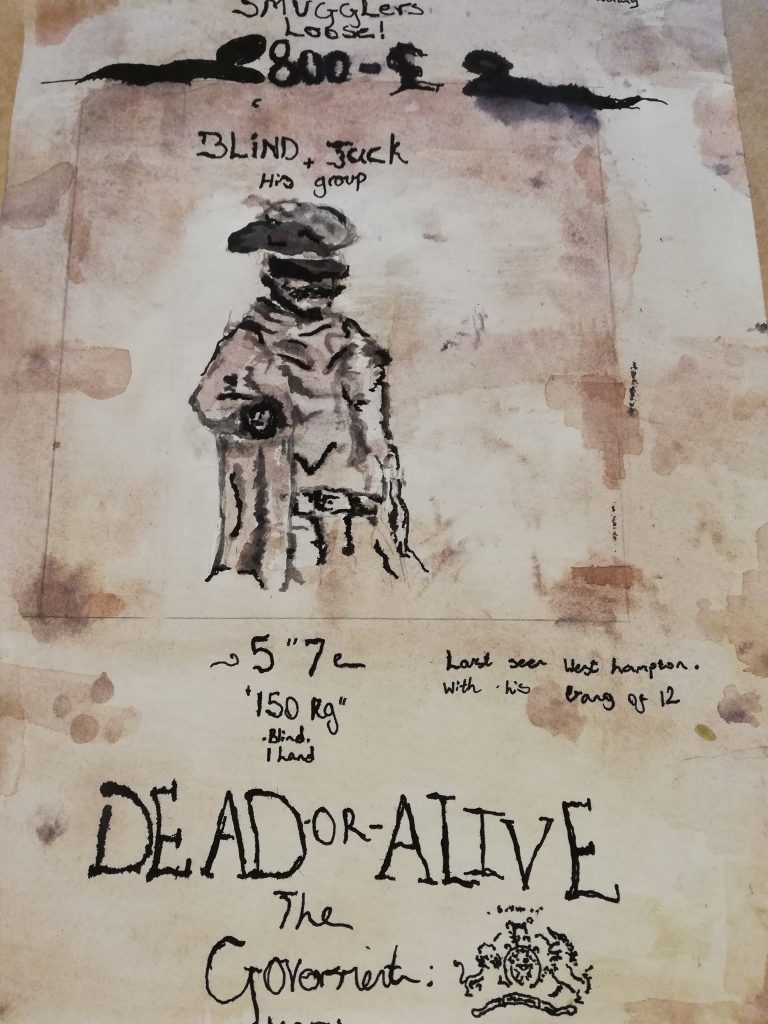 SMUGGLers
Loose!
800-£
BLIND + Jack
His group
5"7
"150 Kg"
.Blind.
1 hand
Last seen West hampton.
With his Gang of 12
DEAD-OR-ALIVE
The
Goverment: